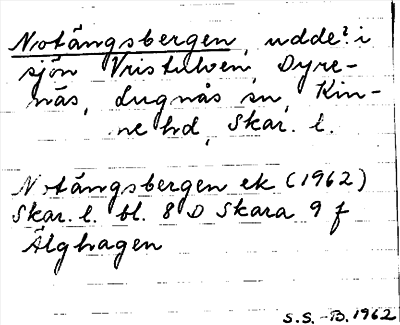 Notängsbergen, udde? i
sjön Vristulven, Dyre-
näs, Lugnås sn, Kin-
ne hd, Skar. l.
Notängsbergen ek (1962)
Skar. l. bl. 8 D Skara 9 f
Älghagen
S.S.-B. 1962